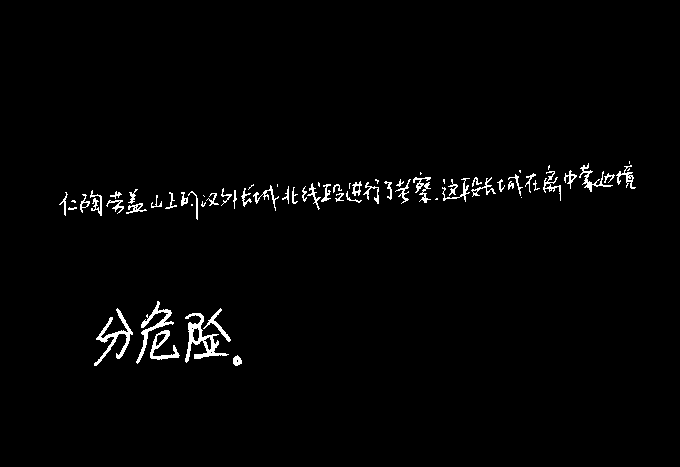 仁陶劳盖山上的汉外长城北线段进行了考察.这段长城在离中蒙边境
分危险。